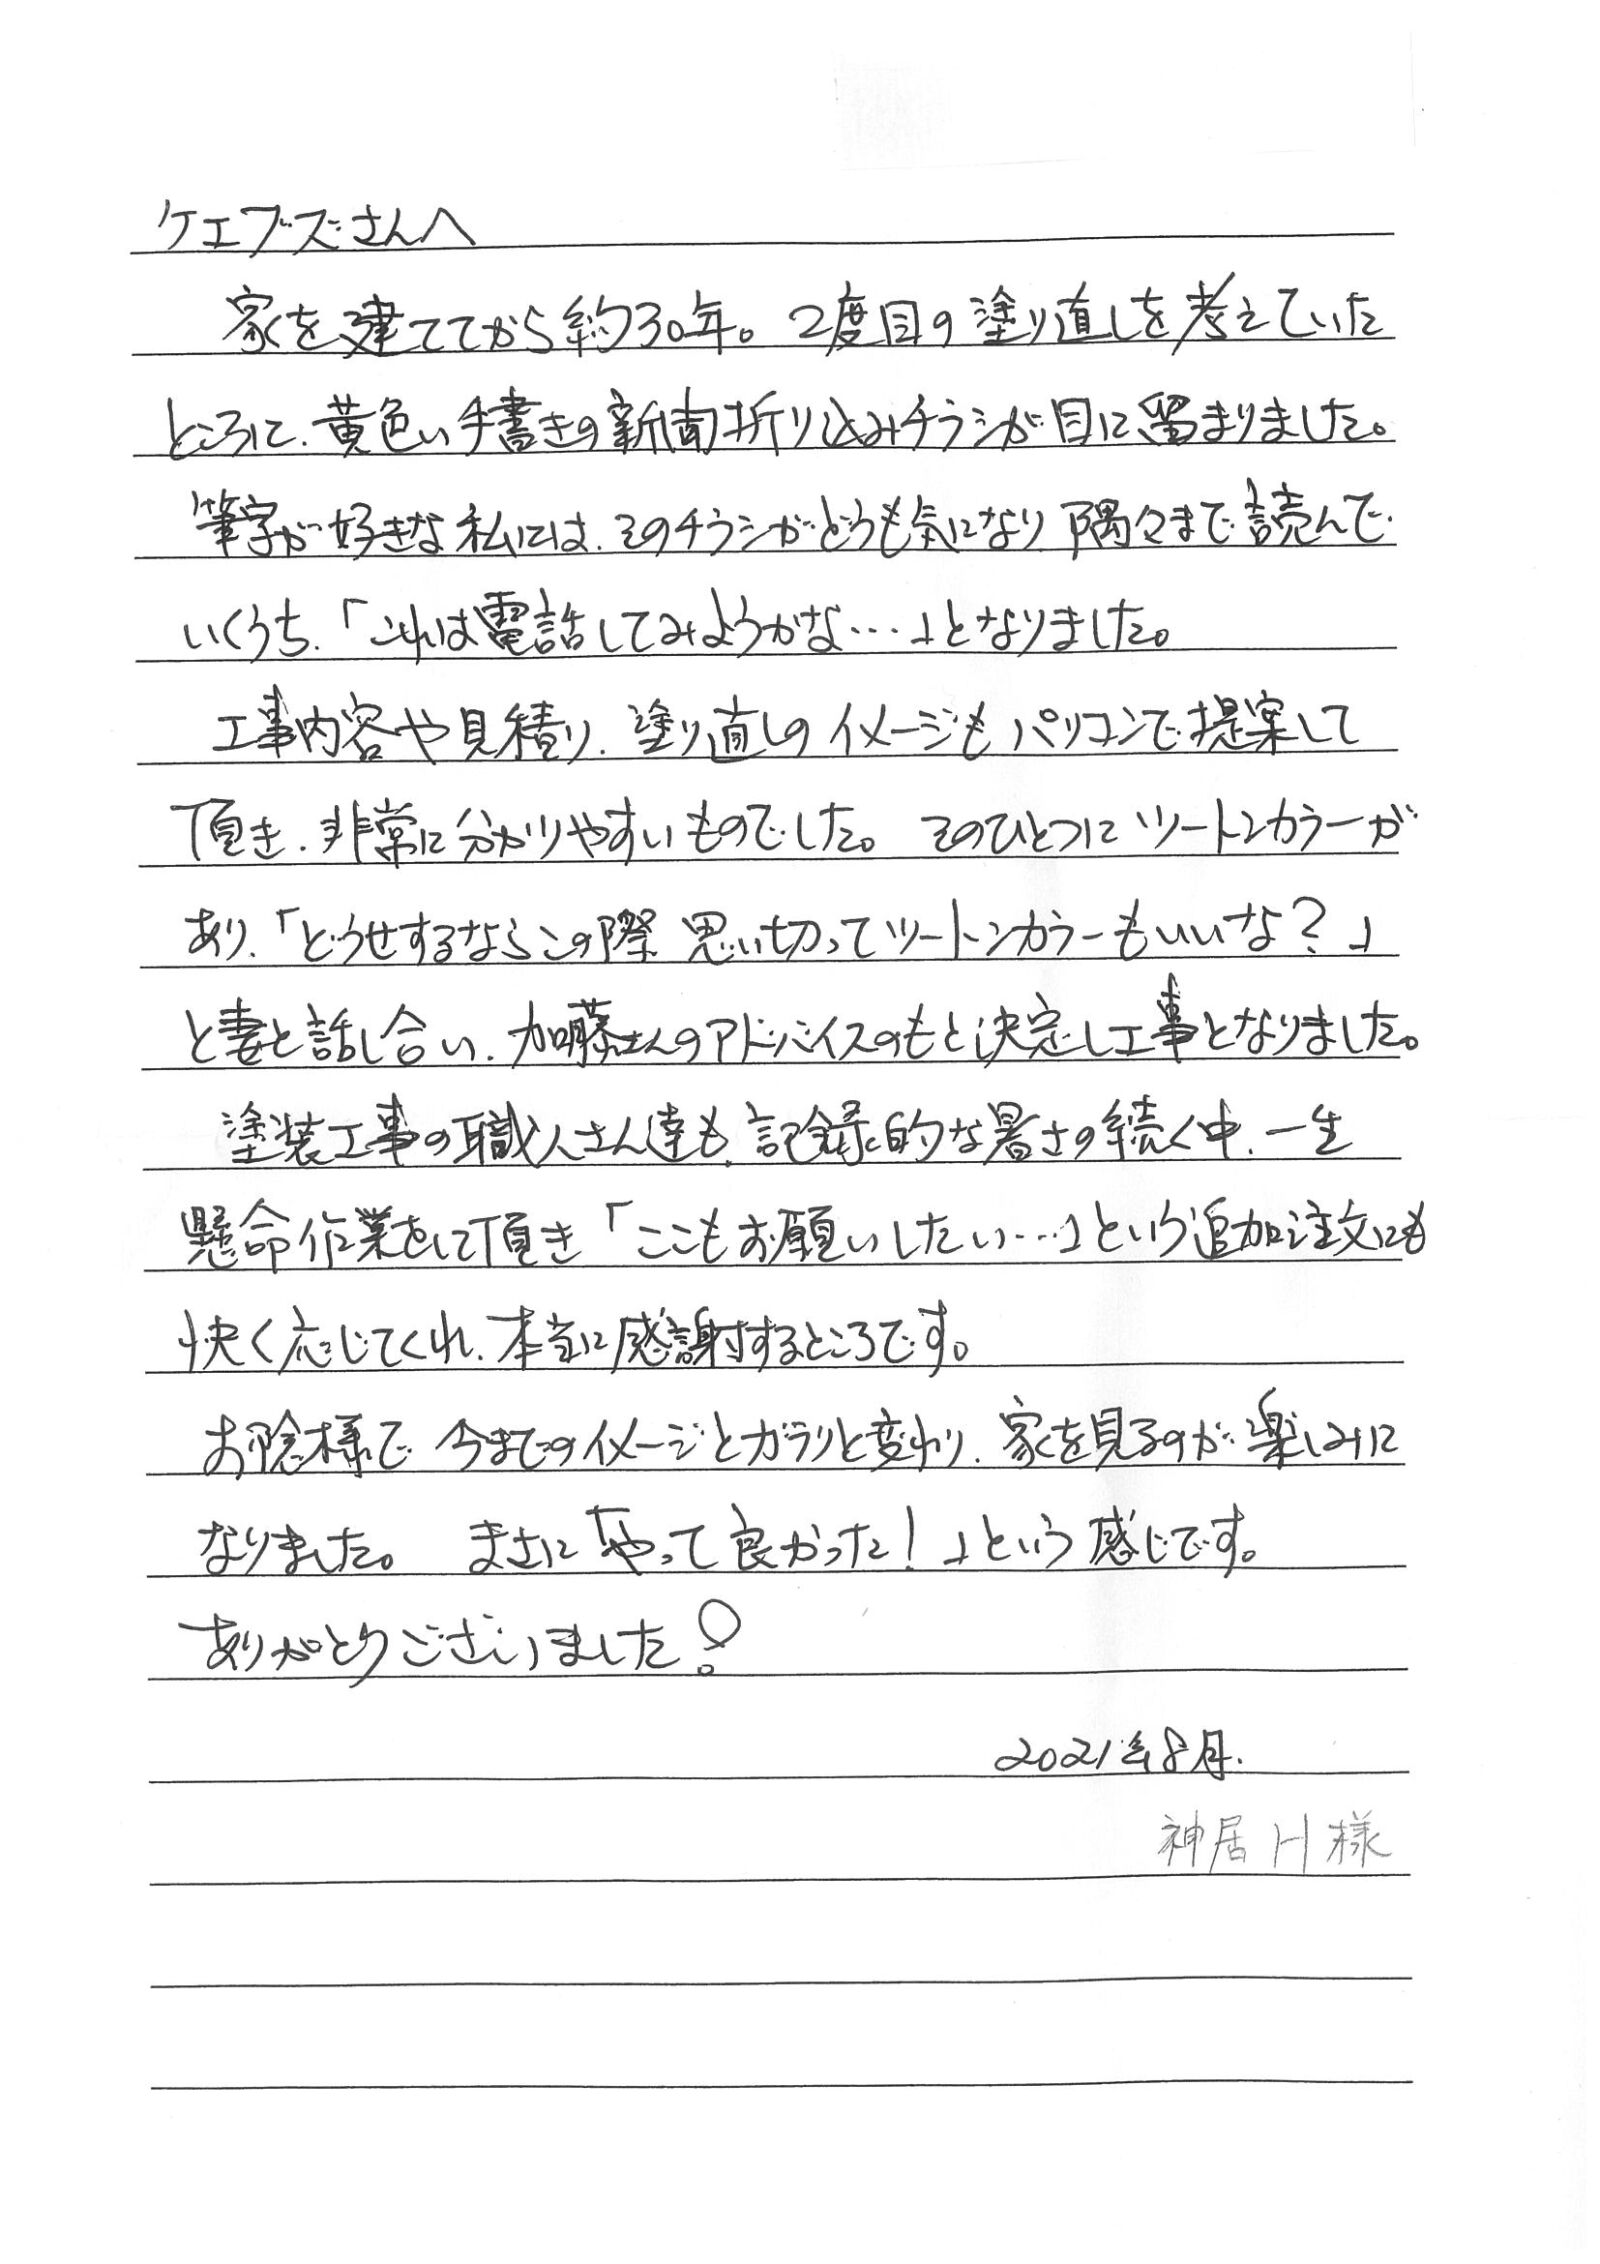 ケエブズさんへ
家を建ててから約30年。2度目の塗り直しを考えていた
ところに、黄色い手書きの新聞折り込みチラシが目に留まりました。
筆字が好きな私には、そのチラシがどうも気になり、隅々まで読んで
いくうち、「これは電話してみようかな…」となりました。
工事内容や見積り、塗り直しのイメージもパソコンで提案して
頂き、非常に分かりやすいものでした。そのひとつにツートンカラーが
あり、「どうせするならこの際 思い切ってツートンカラーもいいな?」
と妻と話し合い、加藤さんのアドバイスのもと決定し工事となりました。
塗装工事の職人さん達も、記録的な暑さの続く中、一生
懸命作業をして頂き「ここもお願いしたい…」という追加注文にも
快く応じてくれ、本当に感謝するところです。
お陰様で 今までのイメージとガラリと変わり、家を見るのが楽しみに
なりました。 まさに「やって良かった!」という感じです。
ありがとうございました!
2021年8月.
神居 H様